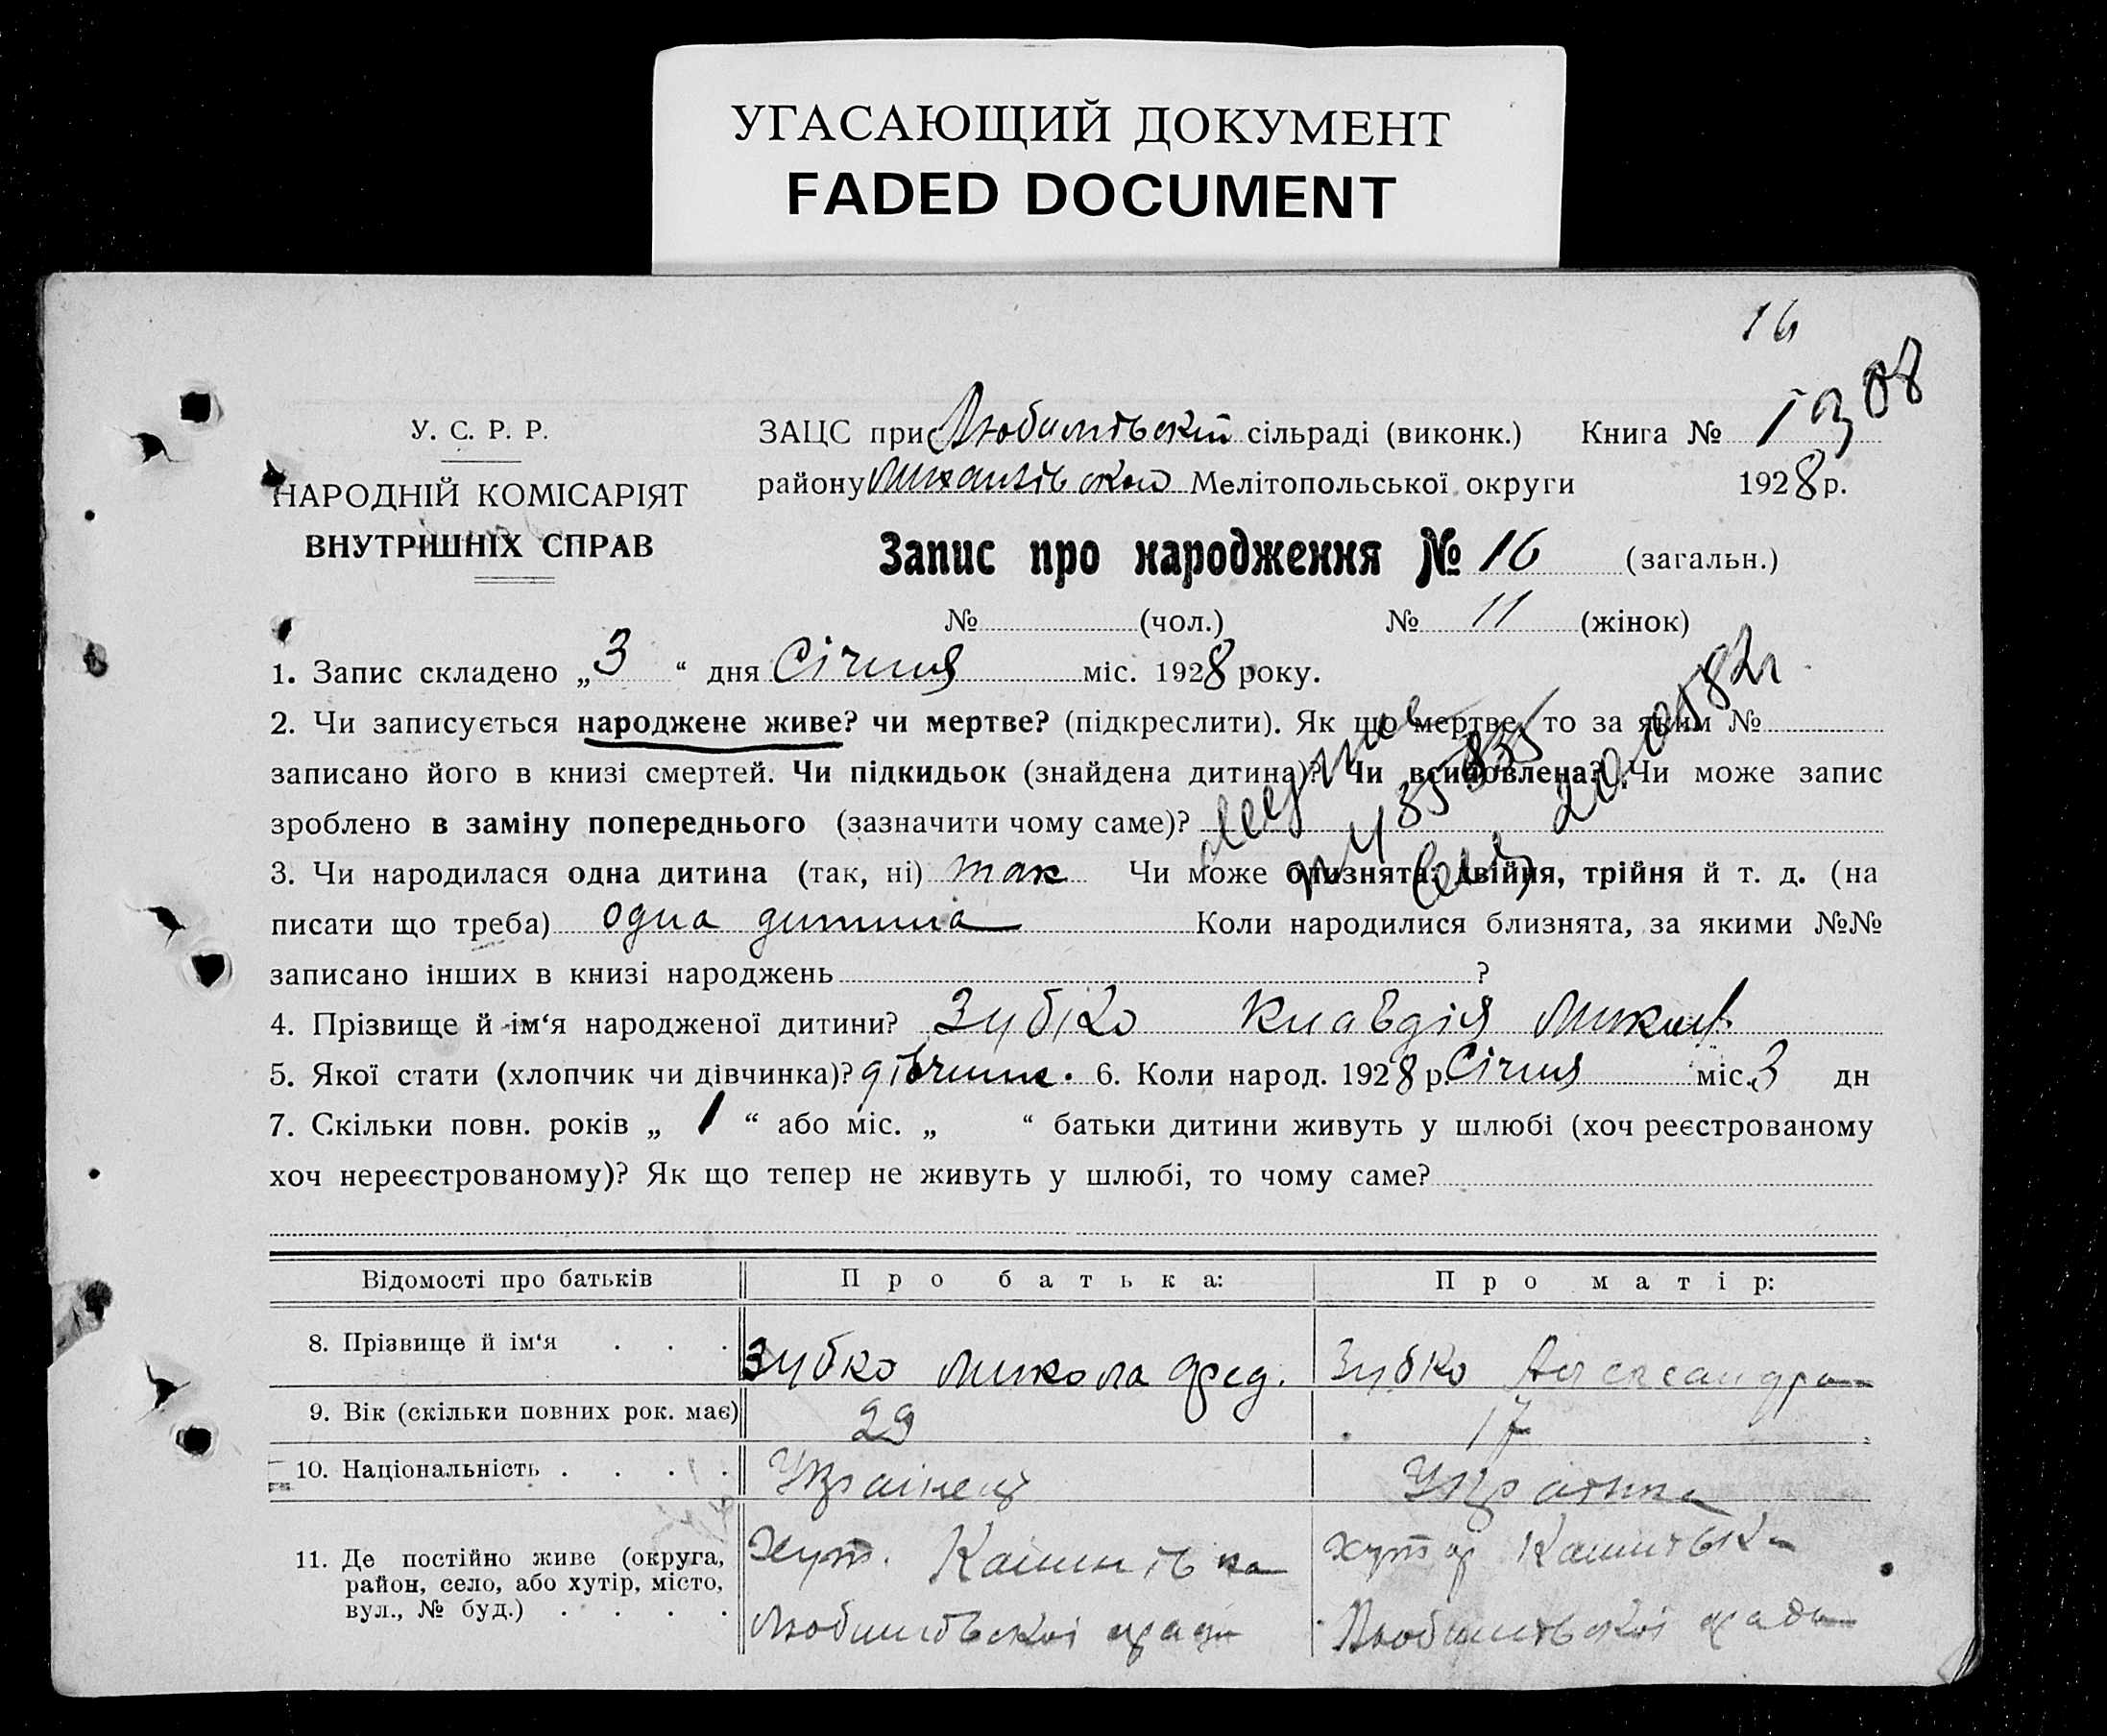 УГАСАЮЩИЙ ДОКУМЕНТ
FADED DOCUMENT
16
У. С. Р. Р.
НАРОДНІЙ КОМІСАРІЯТ
ВНУТРІШНІХ СПРАВ
ЗАЦС при Любимівській сільраді (виконк.) Книга №
району Михайлівської Мелітопольської округи 1928 р.
Запис про народження № 16 (загальн.)
№ (чол.) № 11 (жінок)
1. Запис складено „3“ дня Січня міс. 1928 року.
2. Чи записується народжене живе? чи мертве? (підкреслити). Як що мертве, то за яким №
записано його в книзі смертей. Чи підкидьок (знайдена дитина)? Чи всиновлена? Чи може запис
зроблено в заміну попереднього (зазначити чому саме)?
3. Чи народилася одна дитина (так, ні) так Чи може близнята: двійня, трійня й т. д. (на
писати що треба) одна дитина Коли народилися близнята, за якими №№
записано інших в книзі народжень ?
4. Прізвище й ім‘я народженої дитини? Зубко Клавдія Микол.
5. Якої стати (хлопчик чи дівчинка)? дівчинк. 6. Коли народ. 1928 р. Січня міс. 3 дн
7. Скільки повн. років „ 1 “ або міс. „ “ батьки дитини живуть у шлюбі (хоч реєстрованому
хоч нереєстрованому)? Як що тепер не живуть у шлюбі, то чому саме?
Відомості про батьків Про батька: Про матір:
8. Прізвище й ім‘я . . . Зубко Микола Фед. Зубко Александра
9. Вік (скільки повних рок. має) 29 17
10. Національність . . . . Українець Українка
11. Де постійно живе (округа,
район, село, або хутір, місто,
вул., № буд.) . . . .
Хут.
Любимівської ради
хутор
Любимівської ради